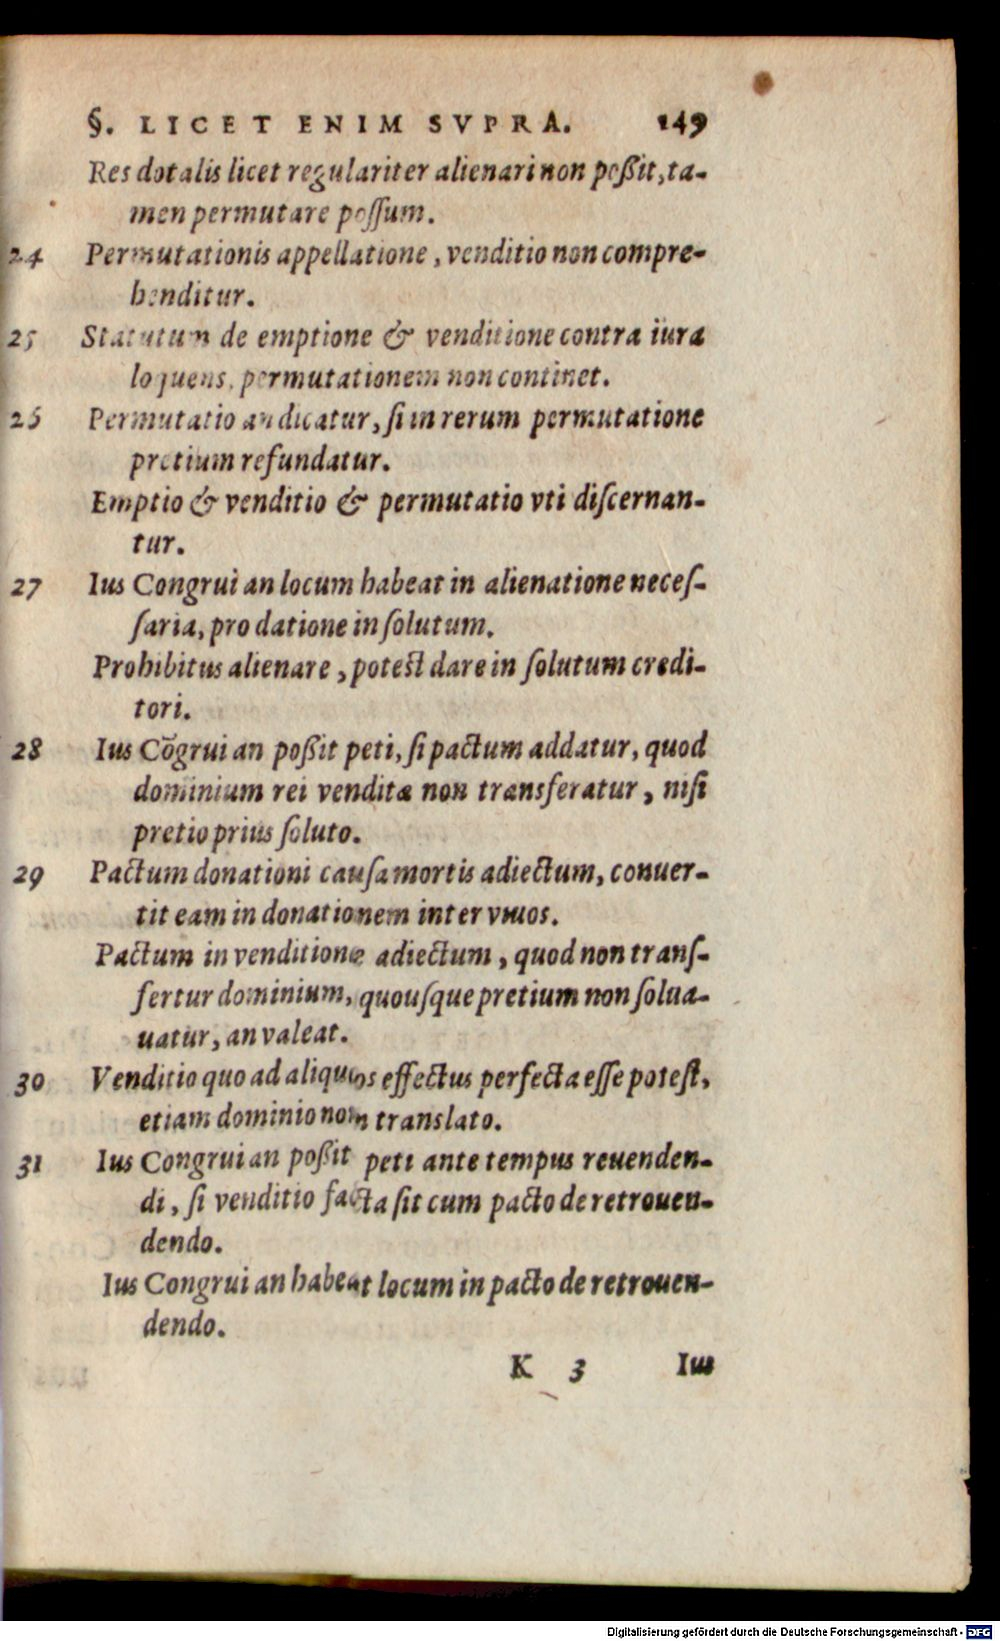 §. LICET ENIM SVPRA. 149
Res dotalis licet regulariter alienari non poßit, ta-
men permutare poſſum.
24 Permutationis appellatione, venditio non compre-
henditur.
25 Statutum de emptione & venditione contra iura
loquens, permutationem non continet.
26 Permutatio an dicatur, ſi in rerum permutatione
pretium refundatur.
Emptio & venditio & permutatio vti diſcernan-
tur.
27 Ius Congrui an locum habeat in alienatione neceſ-
ſaria, pro datione in ſolutum.
Prohibitus alienare, potest dare in ſolutum credi-
tori.
28 Ius Cõgrui an poßit peti, ſi pactum addatur, quod
dominium rei venditæ non transferatur, niſi
pretio prius ſoluto.
29 Pactum donationi cauſa mortis adiectum, conuer-
tit eam in donationem inter viuos.
Pactum in venditione adiectum, quod non tranſ-
fertur dominium, quouſque pretium non ſolua-
uatur, an valeat.
30 Venditio quo ad aliquos effectus perfecta eſſe poteſt,
etiam dominio non translato.
31 Ius Congrui an poßit peti ante tempus reuenden-
di, ſi venditio facta ſit cum pacto de retrouen-
dendo.
Ius Congrui an habeat locum in pacto de retrouen-
dendo.
K 3 Ius
Digitalisierung gefördert durch die Deutsche Forschungsgemeinschaft - DFG